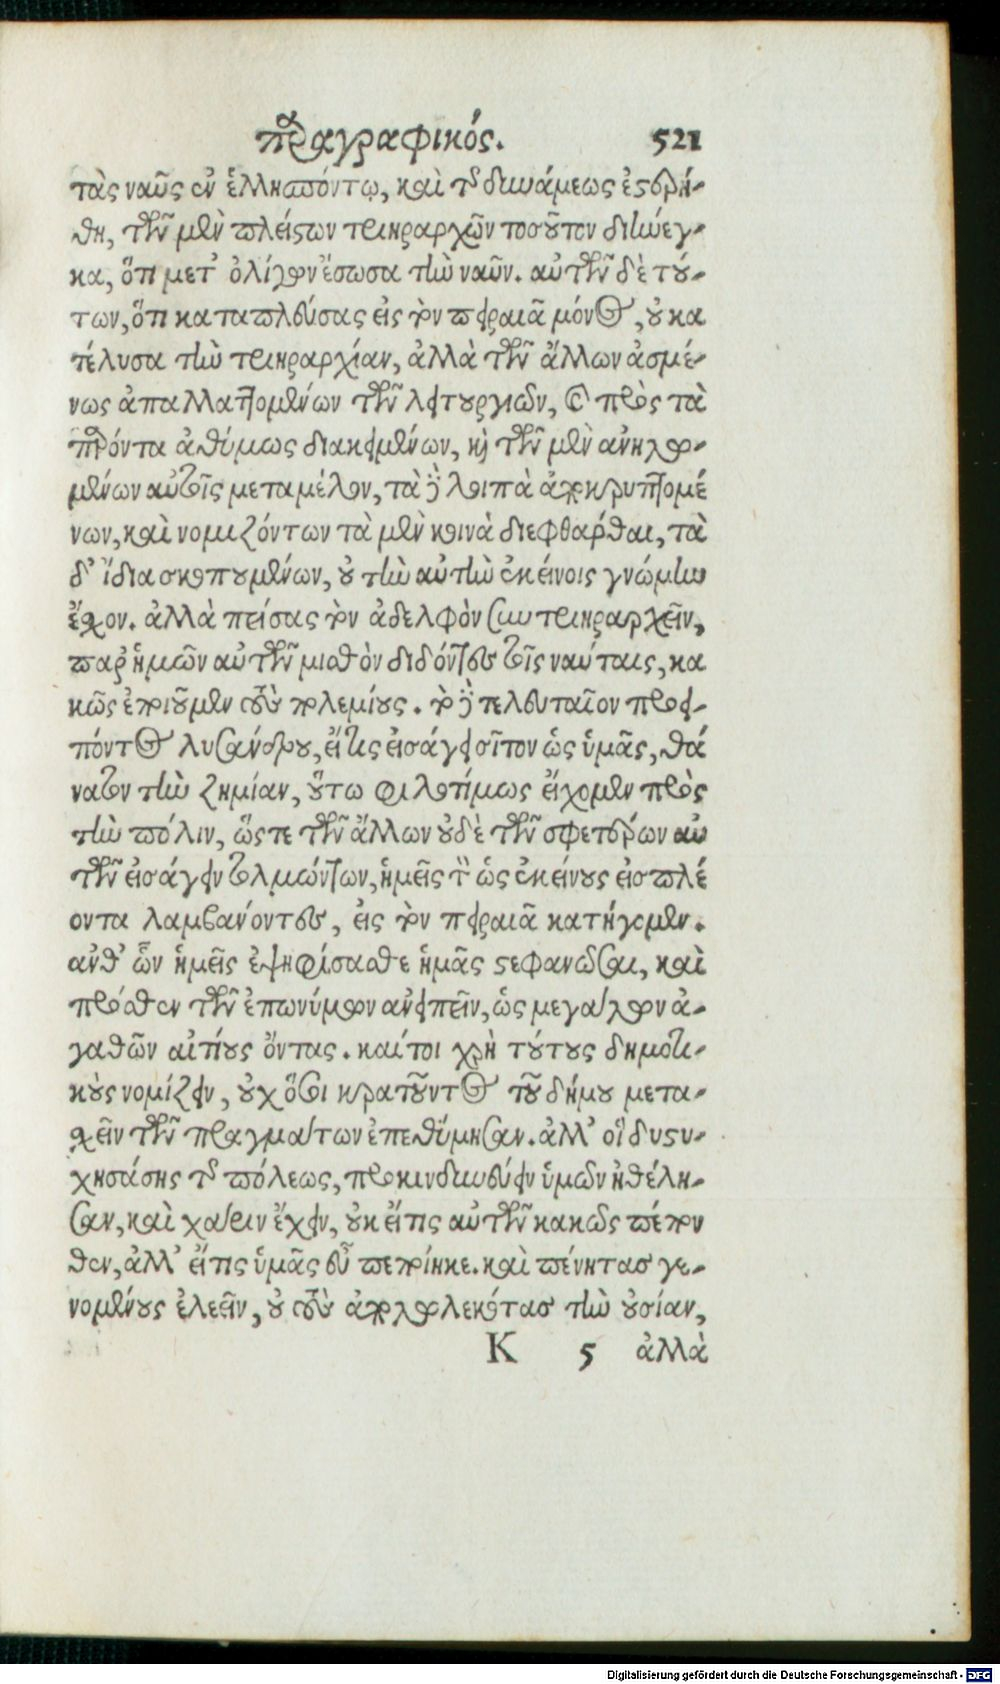 παραγραφικός. 521
τὰς ναῦς ἐν ἑλλησπόντῳ, καὶ τῆς δυνάμεως ἐστερή-
θη, τῶν μὲν πλείστων τριηραρχῶν τοσοῦτον διήνεγ-
κα, ὅτι μετ' ὀλίγων ἔσωσα τὴν ναῦν. αὐτῶν δὲ τού-
των, ὅτι καταπλεύσας εἰς τὸν πειραιᾶ μόνος, οὐ κα
τέλυσα τὴν τριηραρχίαν, ἀλλὰ τῶν ἄλλων ἀσμέ-
νως ἀπαλλαττομένων τῶν λειτουργιῶν, καὶ πρὸς τὰ
παρόντα ἀθύμως διακειμένων, καὶ τῶν μὲν ἀνηλω-
μένων αὐτοῖς μεταμέλον, τὰ δὲ λοιπὰ ἀποκρυπτομέ
νων, καὶ νομιζόντων τὰ μὲν κοινὰ διεφθάρθαι, τὰ
δ' ἴδια σκοπουμένων, οὐ τὴν αὐτὴν ἐκείνοις γνώμην
ἔσχον. ἀλλὰ πείσας τὸν ἀδελφὸν συντριηραρχεῖν,
παρ' ἡμῶν αὐτῶν μισθὸν διδόντες τοῖς ναύταις, κα
κῶς ἐποιοῦμεν τοὺς πολεμίους. τὸ δὲ τελευταῖον προει-
πόντος λυσάνδρου, εἴ τις εἰσάγει σῖτον ὡς ὑμᾶς, θά
νατον τὴν ζημίαν, οὕτω φιλοτίμως εἴχομεν πρὸς
τὴν πόλιν, ὥστε τῶν ἄλλων οὐδὲ τῶν σφετέρων αὐ
τῶν εἰσάγειν τολμώντων, ἡμεῖς τὸν ὡς ἐκείνους εἰσπλέ
οντα λαμβάνοντες, εἰς τὸν πειραιᾶ κατήγομεν.
ἀνθ' ὧν ἡμεῖς ἐψηφίσασθε ἡμᾶς στεφανῶσαι, καὶ
πρόσθεν τῶν ἐπωνύμων ἀνειπεῖν, ὡς μεγάλων ἀ-
γαθῶν αἰτίους ὄντας. καίτοι χρὴ τούτους δημοτι-
κοὺς νομίζειν, οὐχ ὅσοι κρατοῦντος τοῦ δήμου μετα-
σχεῖν τῶν πραγμάτων ἐπεθύμησαν. ἀλλ' οἳ δυστυ-
χησάσης τῆς πόλεως, προκινδυνεύειν ὑμῶν ἠθέλη-
σαν, καὶ χάριν ἔχειν, οὐκ εἴ τις αὐτῶν κακῶς πέπον
θεν, ἀλλ' εἴ τις ὑμᾶς εὖ πεποίηκε. καὶ πένητας γε-
νομένους ἐλεεῖν, οὐ τοὺς ἀπολωλεκότας τὴν οὐσίαν,
K 5 ἀλλὰ
Digitalisierung gefördert durch die Deutsche Forschungsgemeinschaft - DFG